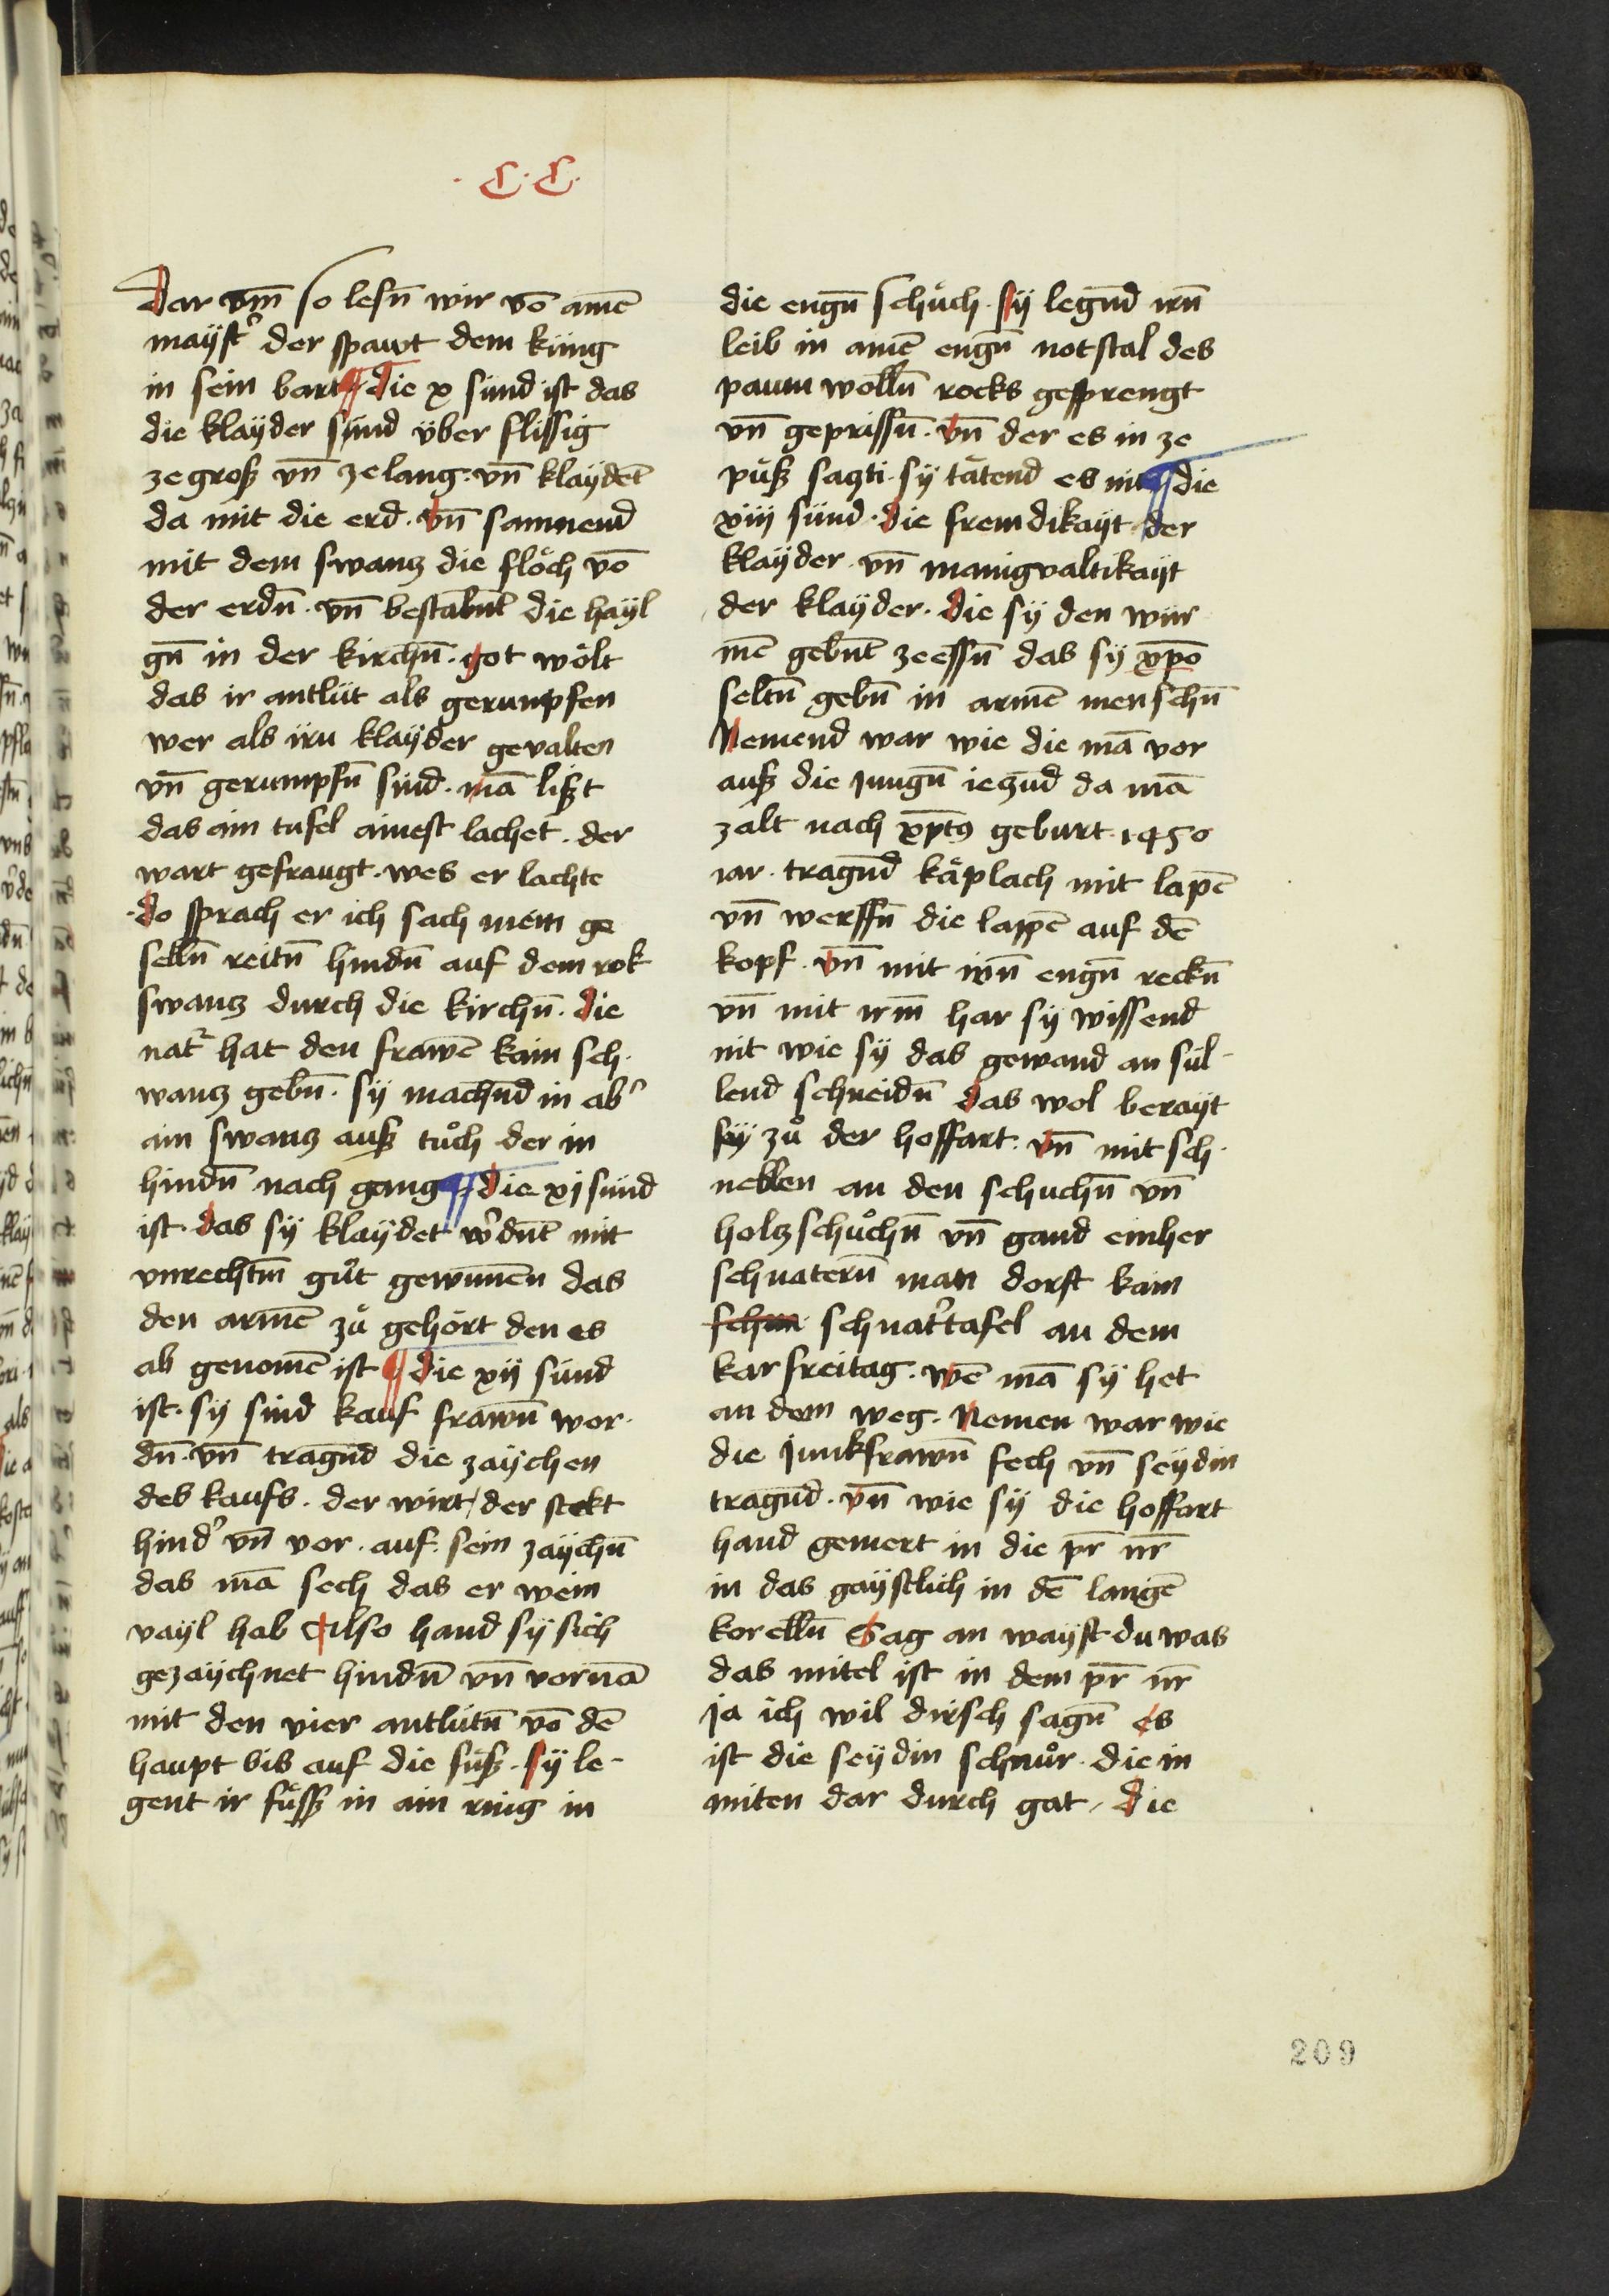 .C.C.
Dar vm̄ so lesn̄ wir vō aınē
maystᷣ der spawt dem küng
in sein bart ¶ die x sünd ist das
die klayder sünd über flissig
ze groß vn̄ ze lang. vn̄ klaydēt
da mit die erd. vn̄ samnend
mit dem swanz die flöch vō
der erdn̄. vn̄ bestabn̄t die hayl
gn̄ in der kirchn̄. got wölt
das ir antlüt als gerumpfen
wer als irn klayder gevalten
vn̄ gerumpfn̄ sind. mā lißt
das ain tufel ainest lachet. der
wart gefraugt. wes er lachte
.do sprach er ich sach mein ge
selln̄ reitn̄ hindn̄ auf dem rok
swanz durch die kirchn̄. die
natᷣ hat den frawē kain sch.
wanz gebn̄. sy machn̄d in abᷣ
ain swanz auß tůch der in
hindn̄ nach gang ¶ die xj sünd
ist. das sy klaydet wᷣdn̄t mit
vnrechtm̄ gůt gewin̄en das
den armē zů gehört den es
ab genomē ist ¶ die xij sünd
ist. sy sind kauf frawn̄ wor.
dn̄. vn̄ tragn̄d die zaychen
des kaufs. der wirt, der stekt
hindᷣ vn̄ vor. auf. sein zaychn̄
das mā sech das er wein
vayl hab Also hand sy sich
gezaychnet hindn̄ vn̄ vornā
mit den vier antlütn̄ vō dē
haupt bis auf die füß. sy le-
gent ir füssz in ain ring in
die engn̄ schüch. sy legn̄d irn̄
leib in ainē engn̄ notstal des
paum wolln̄ rocks gesprengt
vn̄ geprissn̄. vn̄ der es in ze
püß sagti. sy tätend es nit ¶ die
xiij sünd. die fremdikayt der
klayder. vn̄ manigvaltikayt
der klayder. die sy den wür
mē gebn̄t ze essn̄ das sy xp̄o
seltn̄ gebn̄ in armē menschn̄
Nemend war wie die mā vor
auß die jungn̄ iezūd da mā
zalt nach xp̄tꝰ geburt. 1450
iar. tragn̄d käplach mit lapē
vn̄ werffn̄ die lappē auf dē
kopf. vn̄ mit irn̄ engn̄ reckn̄
vn̄ mit irm̄ har sy wissend
nit wie sy das gewand an sül-
lend schneidn̄ das wol berayt
sy zů der hoffart. vn̄ mit sch.
nellen an den schuchn̄ vn̄
holzschůchn̄ vn̄ gand einher
schnatern̄ man dorst kain
schnatᷣtafel an dem
karfreitag. wē mā sy het
an dem weg. Nemen war wie
die junkfrawn̄ fech vn̄ seydin
tragn̄d. vn̄ wie sy die hoffart
hand gemert in die pr̄ nr̄
in das gaystlich in dē langē
korelln̄ Sag an wayst du was
das mitel ist in dem pr̄ nr̄
ja ich wil dirsch sagn̄ es
ist die seydin schnůr. die in
miten dar durch gat, die
209